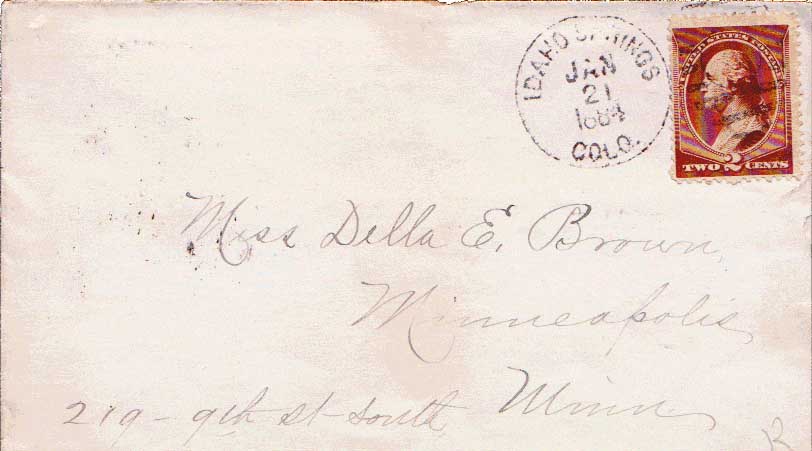 IDAHO SPRINGS
JAN
21
1884
COLO.
UNITED STATES POSTAGE
TWO 2 CENTS
Miss Della E. Brown,
Minneapolis
219 - 9th st south Minn